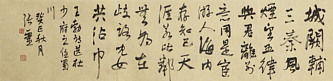 城闕輔
三秦風
煙望五津
與君離別
意同是宦
遊人海内
存知己天
涯若比鄰
無為在
歧路兒女
共沾巾
王勃送杜
少府之任蜀
川
癸巳秋月
張